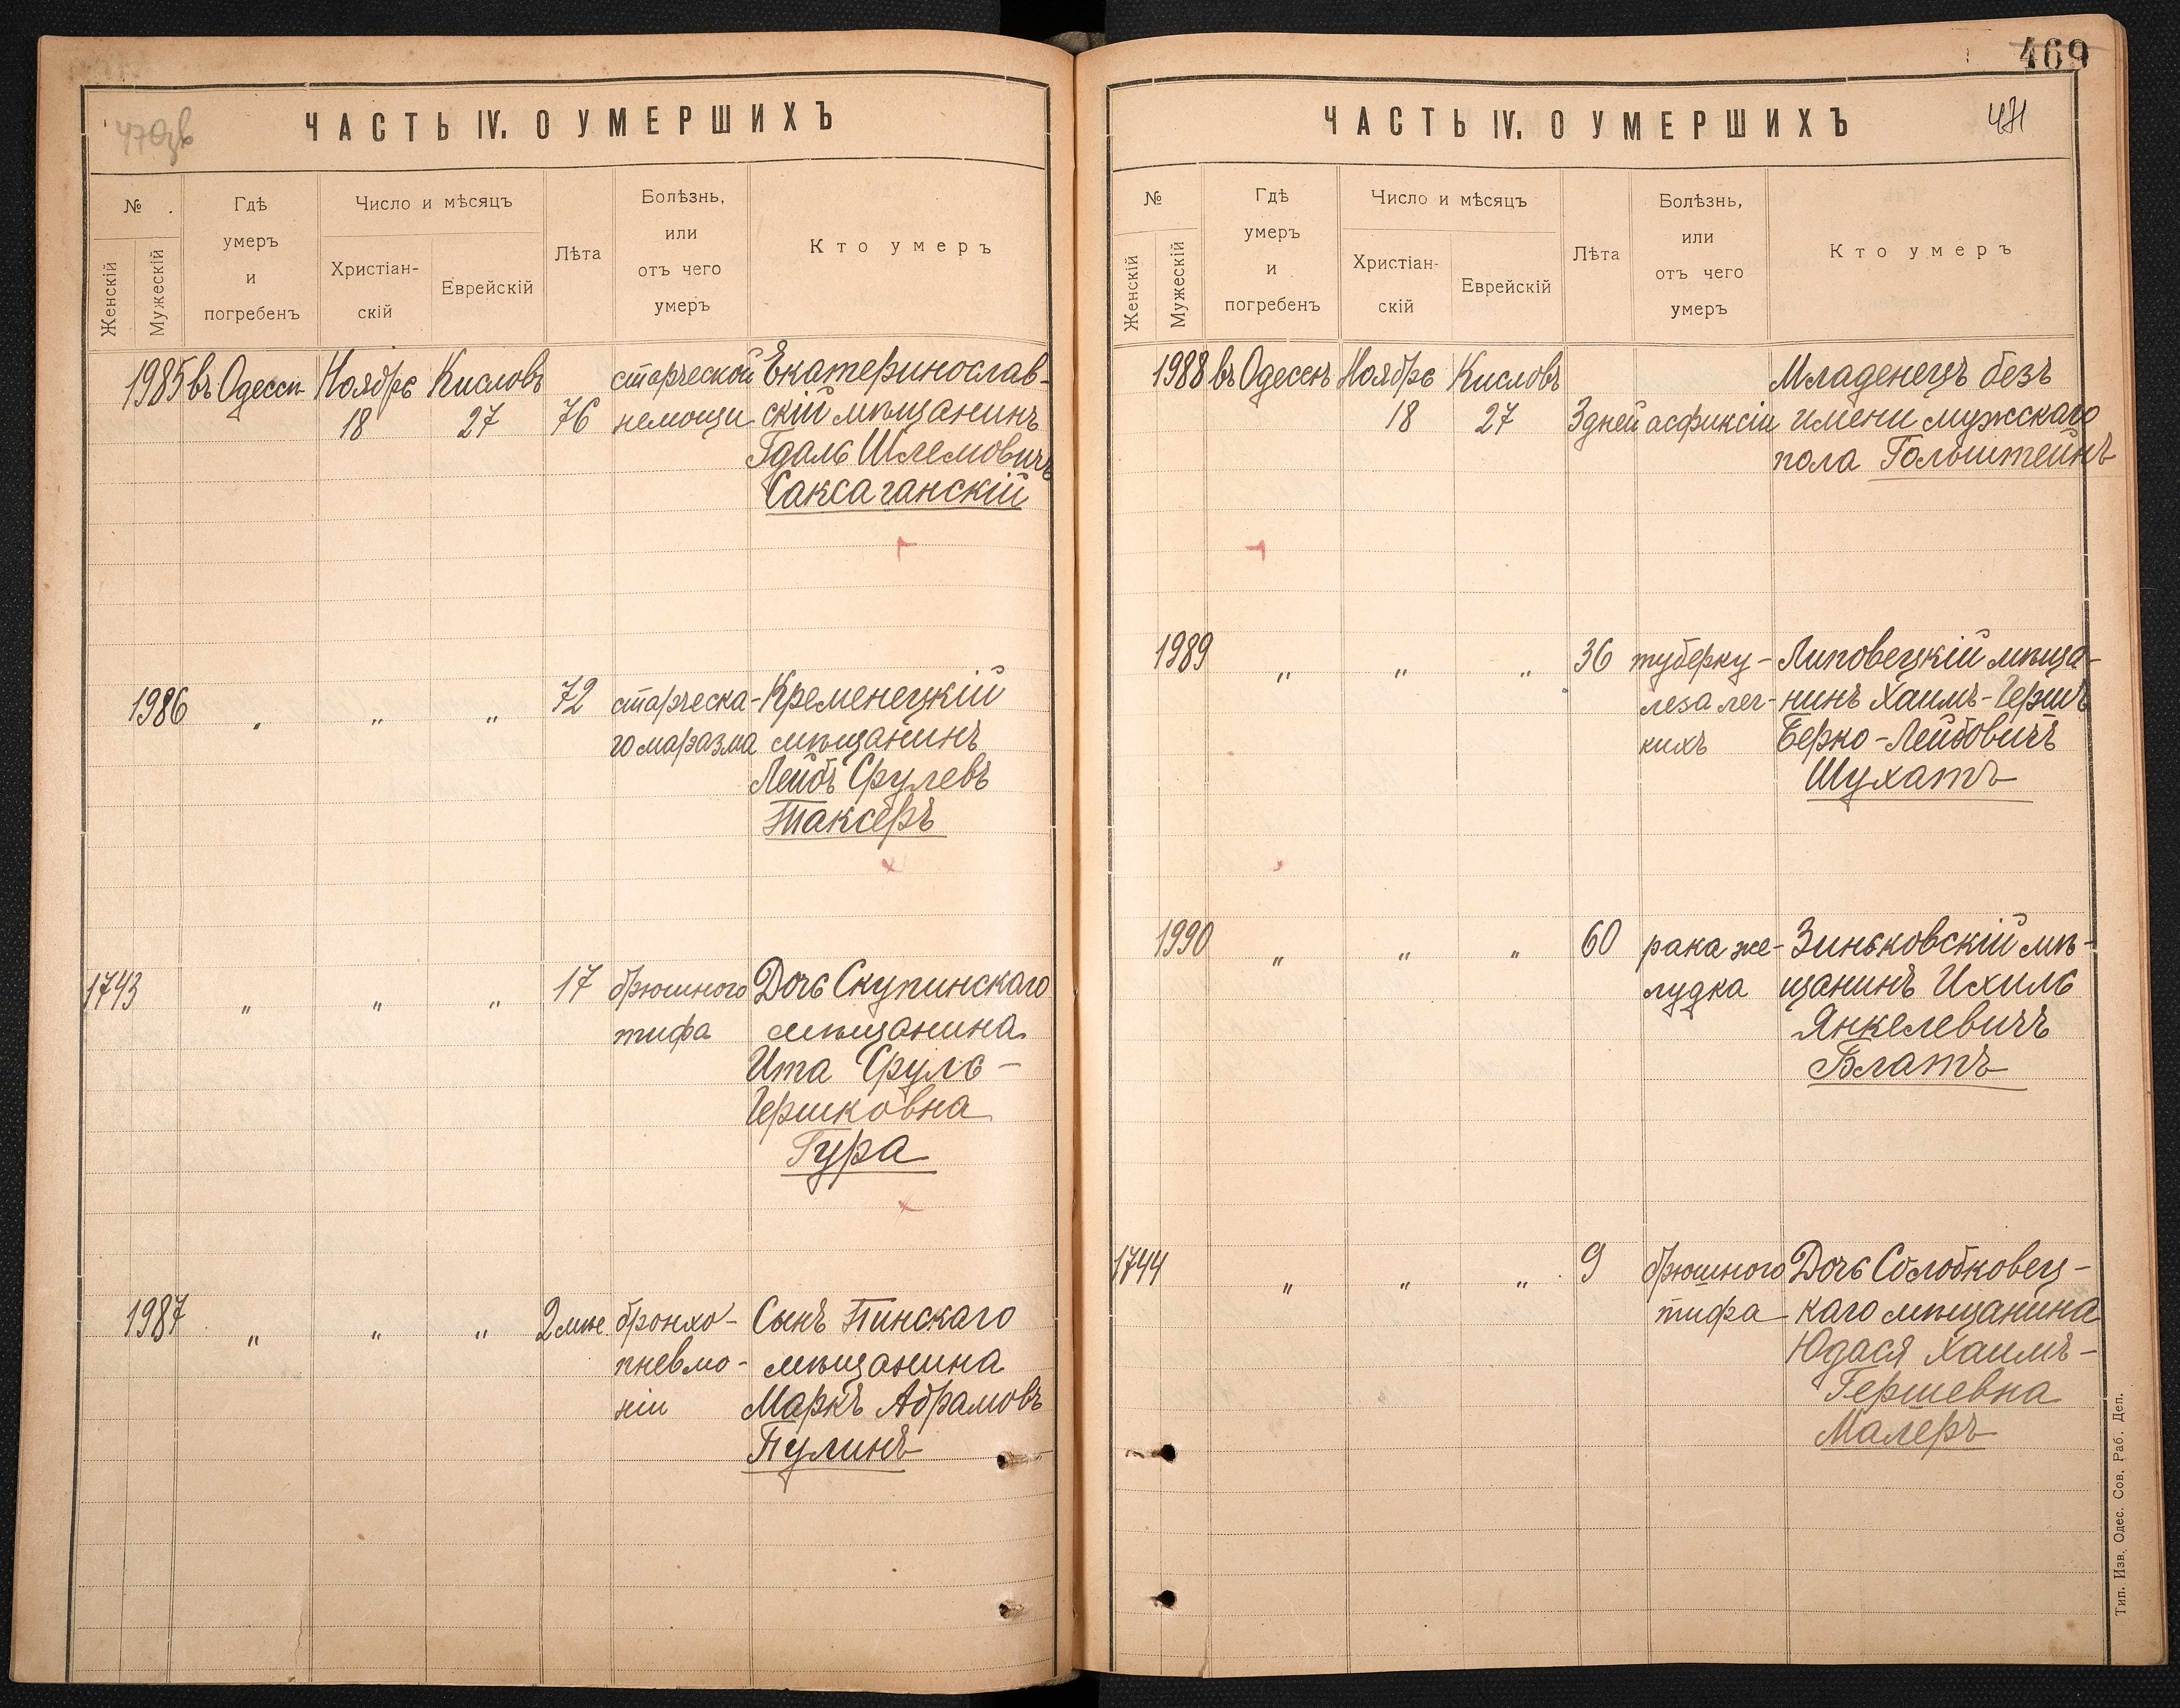 469
ЧАСТЬ IV. О УМЕРШИХЪ
№
Женскій
Мужескій
Гдѣ
умеръ
и
погребенъ
Число и мѣсяцъ
Христіан-
скій
Еврейскій
Лѣта
Болѣзнь,
или
отъ чего
умеръ
Кто умеръ
1985 въ Одессѣ Ноябрь Кисловъ старческой Екатеринослав-
18 27 76 немощи скій мѣщанинъ
Гдаль Шлемовичъ
Саксаганскій
1986 „ „ „ 72 старческа- Кременецкій
го маразма мѣщанинъ
Лейбъ Срулевъ
Таксеръ
1743 „ „ „ 17 брюшного Дочь Скупинскаго
тифа мѣщанина
Ита Сруль-
Гершковна
Гура
1987 „ „ „ 2 мѣс бронхо- Сынъ Пинскаго
пневмо- мѣщанина
ніи Маркъ Абрамовъ
Пулинъ
ЧАСТЬ IV. О УМЕРШИХЪ
471
№
Женскій
Мужескій
Гдѣ
умеръ
и
погребенъ
Число и мѣсяцъ
Христіан-
скій
Еврейскій
Лѣта
Болѣзнь,
или
отъ чего
умеръ
Кто умеръ
1988 въ Одессѣ Ноябрь Кисловъ Младенецъ безъ
18 27 3 дней асфиксіи имени мужскаго
пола Гольштейнъ
1989 „ „ „ 36 туберку- Липовецкій мѣща-
леза лег- нинъ Хаимъ-Гершъ
кихъ Берко-Лейбовичъ
Шухатъ
1990 „ „ „ 60 рака же- Зиньковскій мѣ-
лудка щанинъ Ихиль
Янкелевичъ
Блатъ
1744 „ „ „ 9 брюшного Дочь Солобковец-
тифа каго мѣщанина
Юдася Хаимъ-
Гершевна
Малеръ
Тип. Изв. Одес. Сов. Раб. Деп.